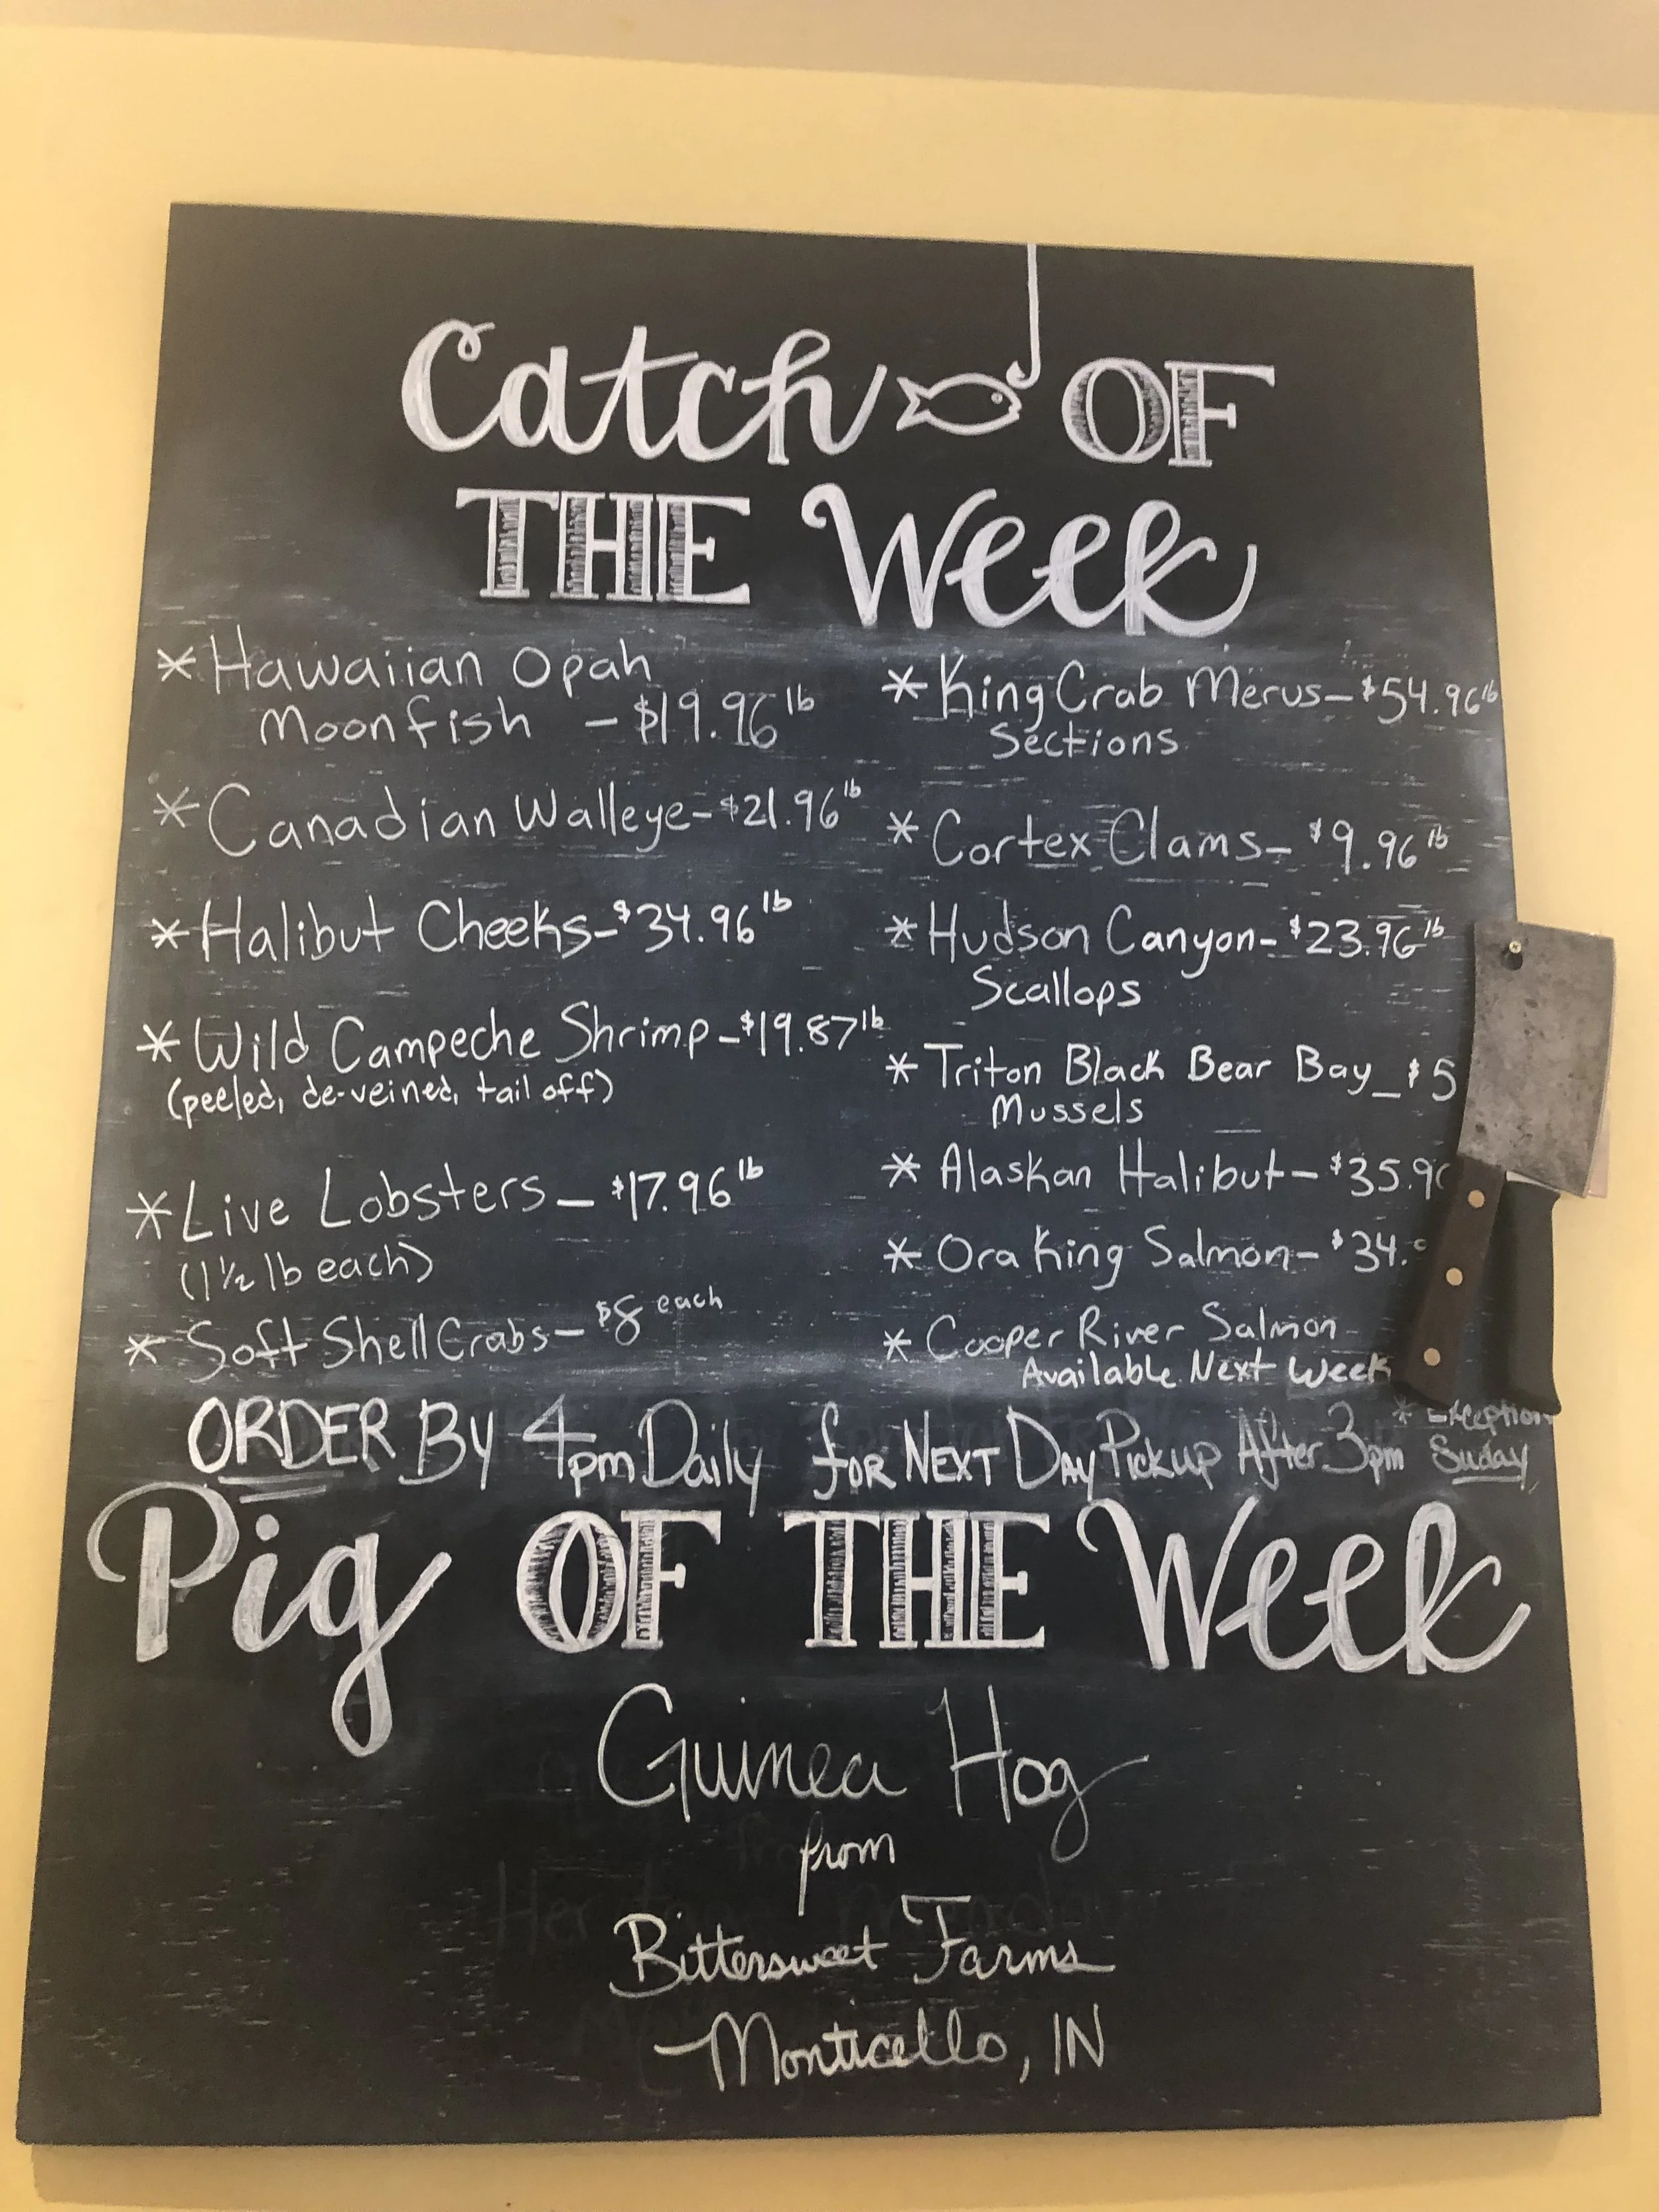 Catch OF
THE Week
* Hawaiian Opah
Moonfish - $19.96 lb
* Canadian Walleye - $21.96 lb
* Halibut Cheeks - $34.96 lb
* Wild Campeche Shrimp - $19.87 lb
(peeled, de-veined, tail off)
* Live Lobsters - $17.96 lb
(1 1/2 lb each)
* Soft Shell Crabs - $8 each
* King Crab Merus - $54.96 lb
Sections
* Cortex Clams - $9.96 lb
* Hudson Canyon - $23.96 lb
Scallops
* Triton Black Bear Bay - $5
Mussels
* Alaskan Halibut - $35.9
* Ora King Salmon - $34.
* Cooper River Salmon
Available Next Week
ORDER By 4pm Daily for NEXT DAY Pickup After 3pm
* Exception
Suday
Pig OF THE Week
Guinea Hog
from
Bittersweet Farms
Monticello, IN